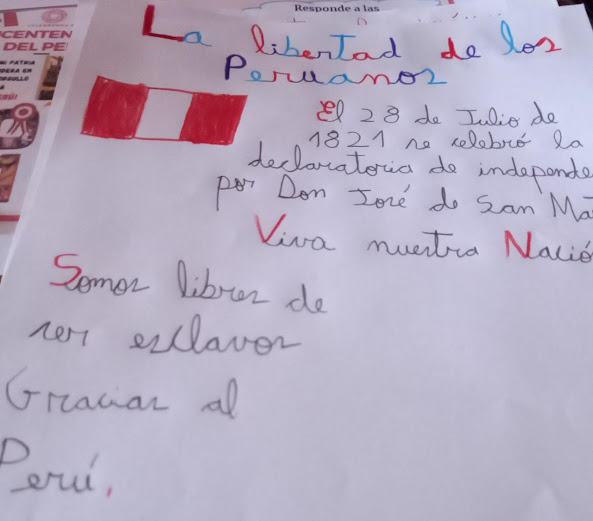 Responde a las
CENTEN
DEL PE
MI PATRIA
DERA EN
La libertad de los
Peruanos
El 28 de Julio de
1821 se celebró la
declaratoria de independe
por Don José de San Ma
Viva nuestra Nació
Somos libres de
ser esclavos
Gracias al
Perú.